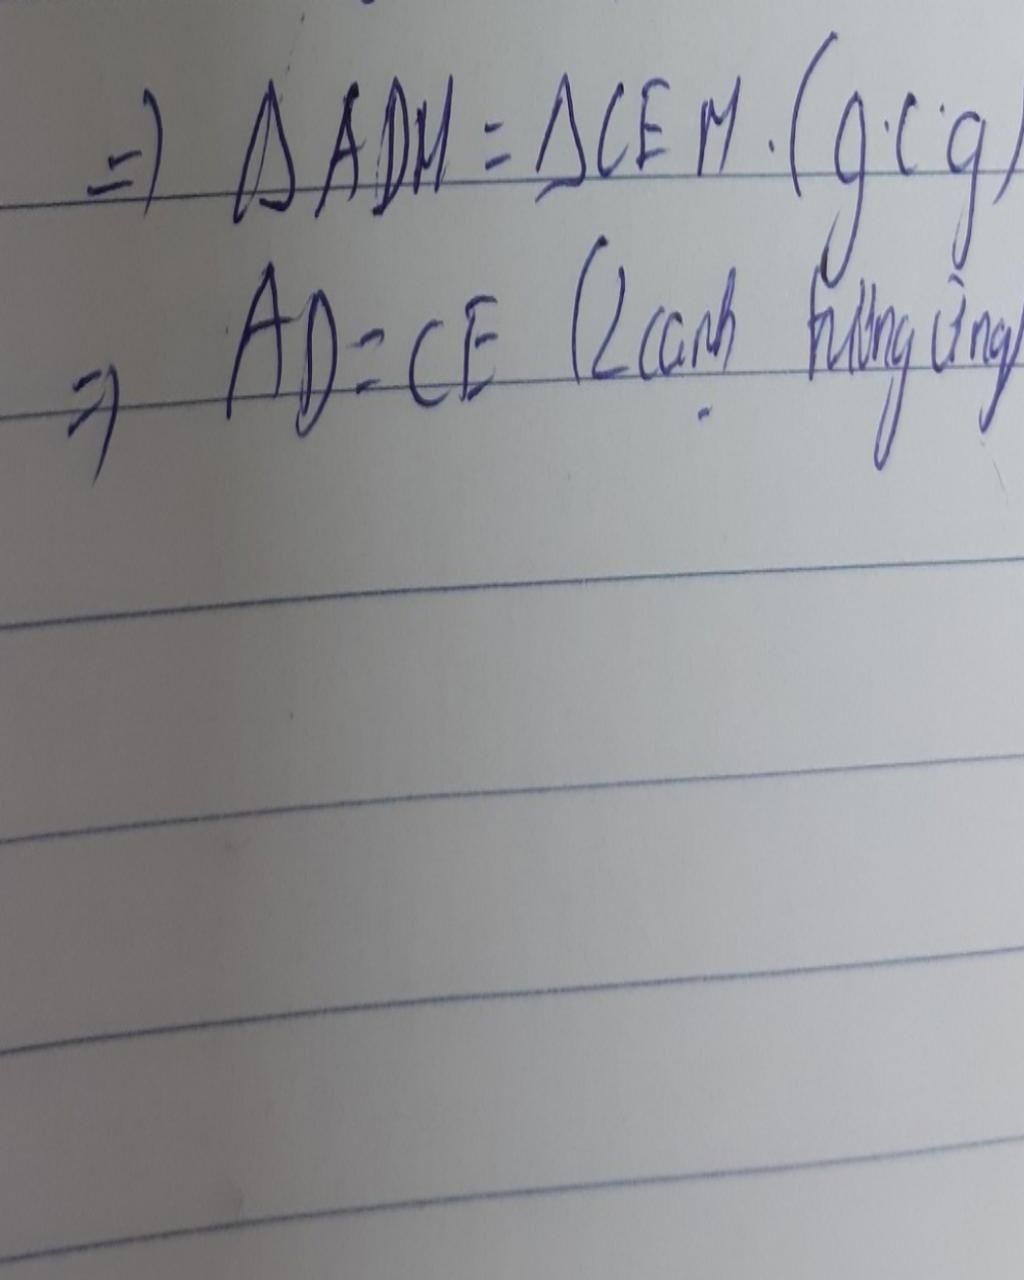 => Δ ADM = Δ CEM. (g.c.g)
=> AD = CE (2 cạnh tương ứng)